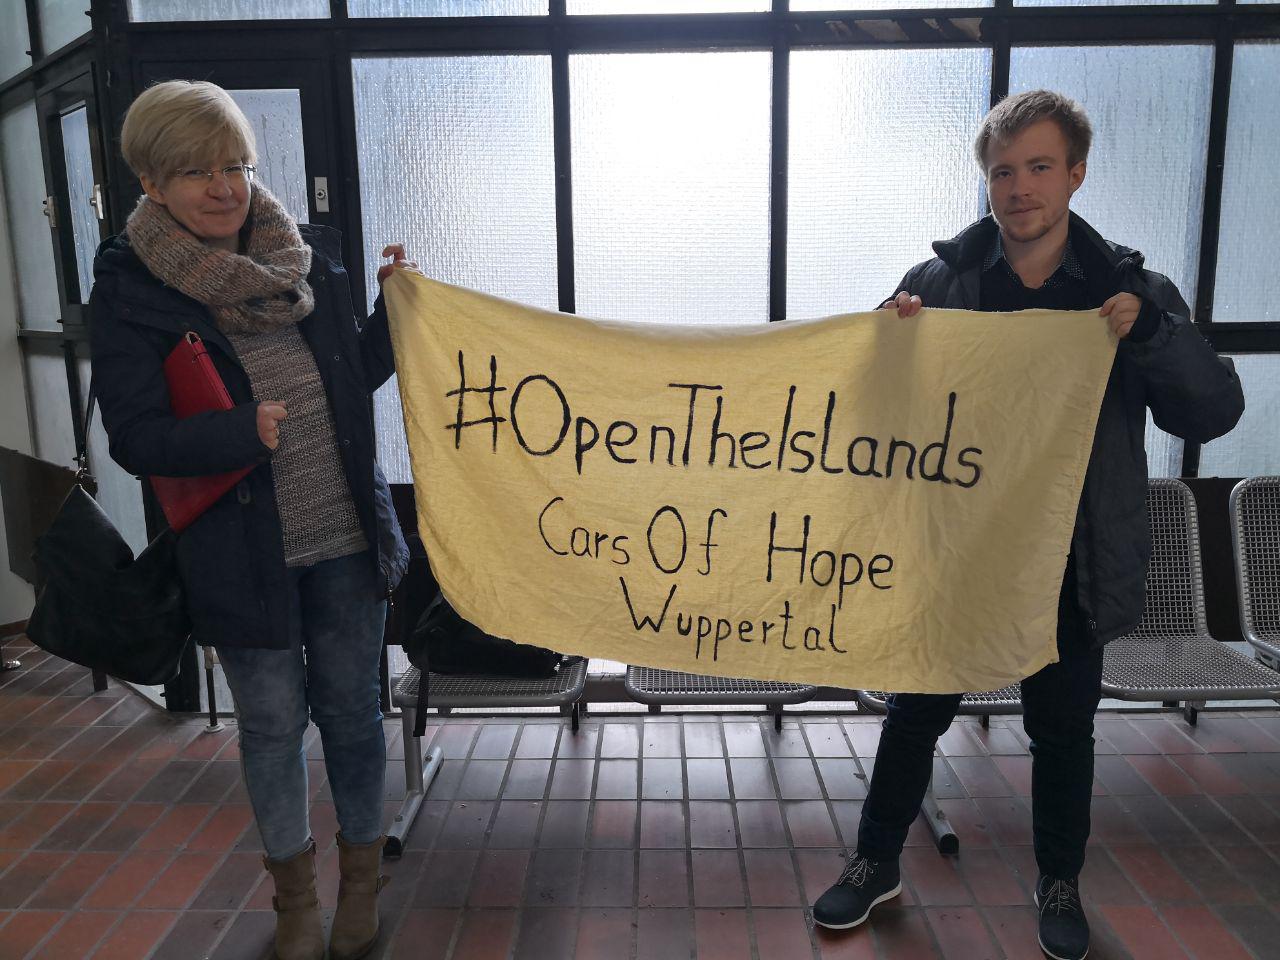 #OpenTheIslands
Cars Of Hope
Wuppertal